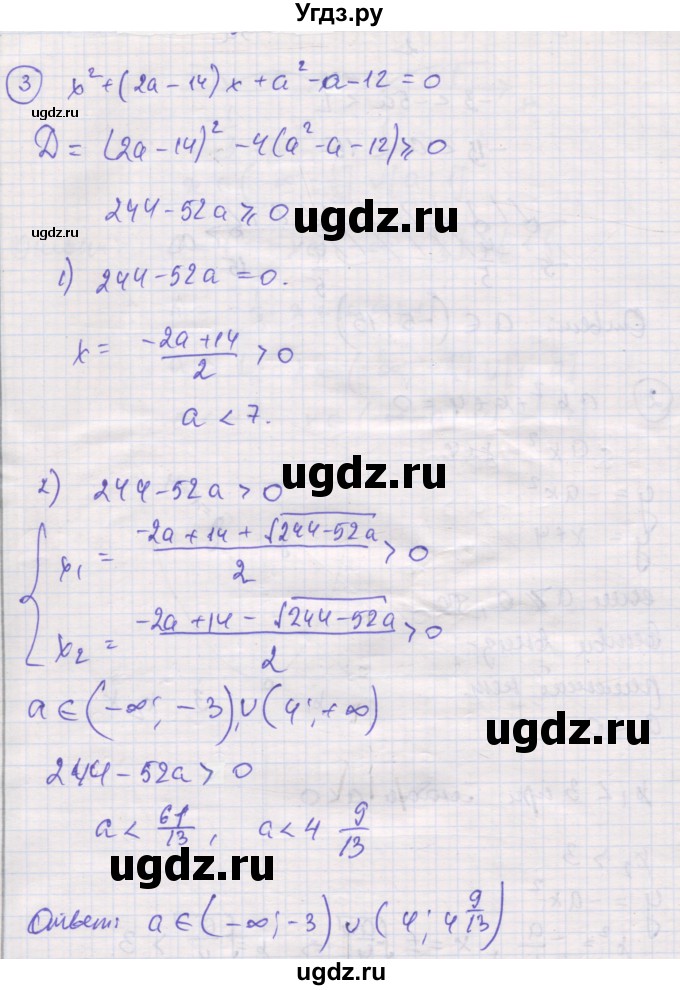 Угдз.ру
③ x² + (2a - 14)x + a² - a - 12 = 0
ugdz.ru
D = (2a - 14)² - 4(a² - a - 12) ≥ 0
244 - 52a ≥ 0
ugdz.ru
ugdz.ru
1) 244 - 52a = 0.
x = (-2a + 14)/2 > 0
a < 7.
ugdz.ru
2) 244 - 52a > 0
{ x₁ = (-2a + 14 + √(244 - 52a))/2 > 0
x₂ = (-2a + 14 - √(244 - 52a))/2 > 0
a ∈ (-∞; -3) ∪ (4; +∞)
ugdz.ru
244 - 52a > 0
a < 61/13, a < 4 9/13
ugdz.ru
Ответ: a ∈ (-∞; -3) ∪ (4; 4 9/13)
ugdz.ru